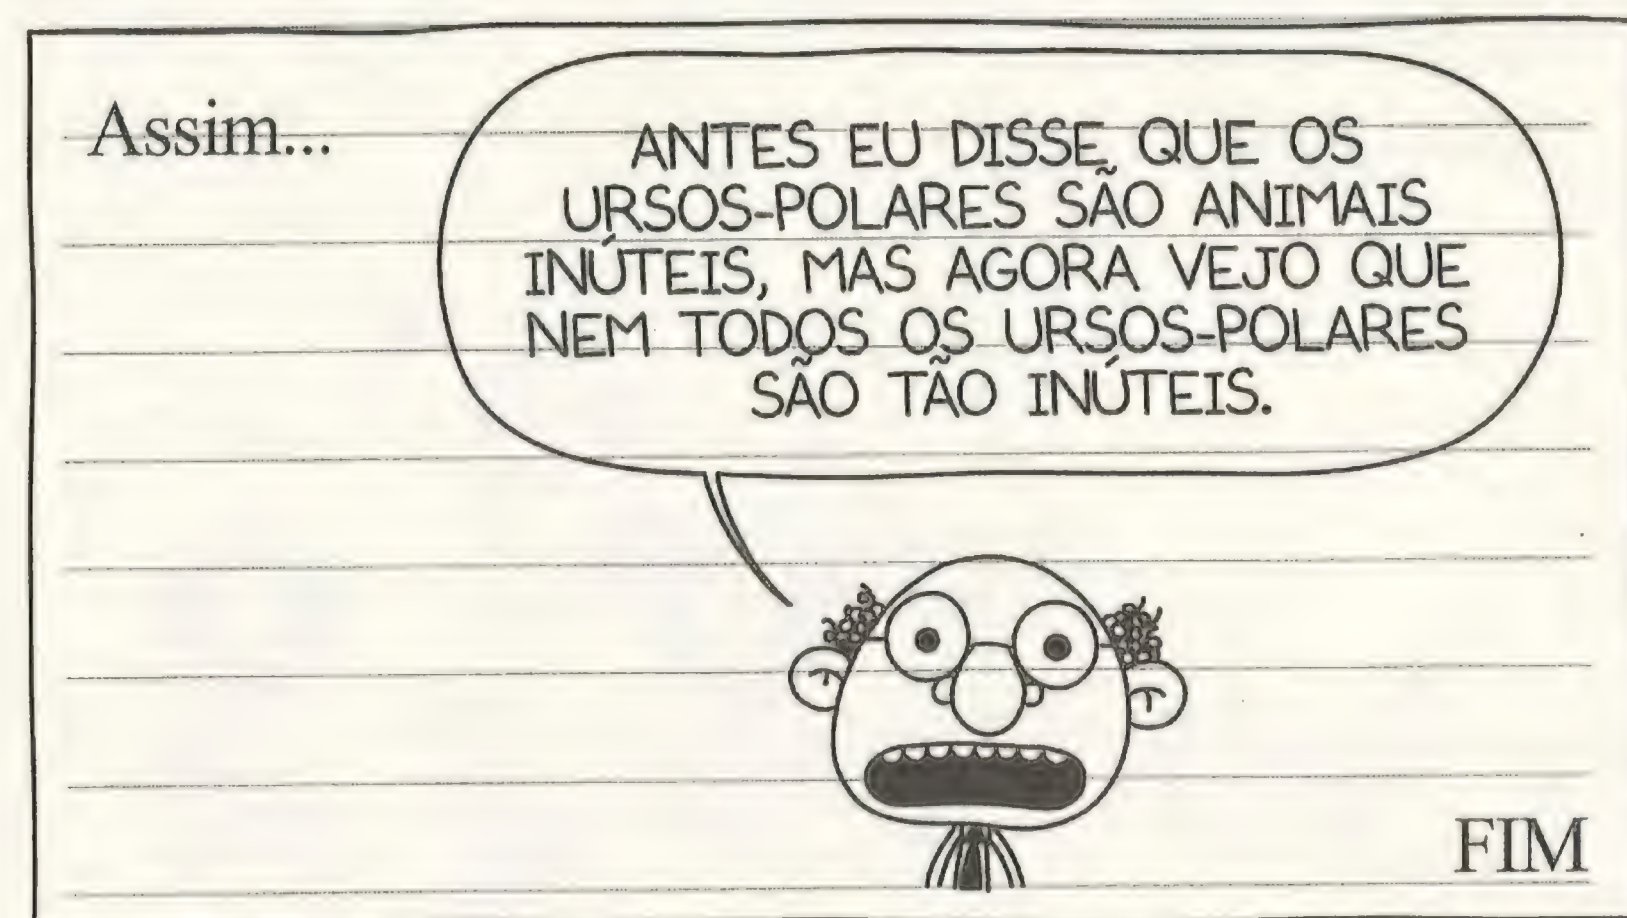 Assim...
ANTES EU DISSE QUE OS
URSOS-POLARES SÃO ANIMAIS
INÚTEIS, MAS AGORA VEJO QUE
NEM TODOS OS URSOS-POLARES
SÃO TÃO INÚTEIS.
FIM